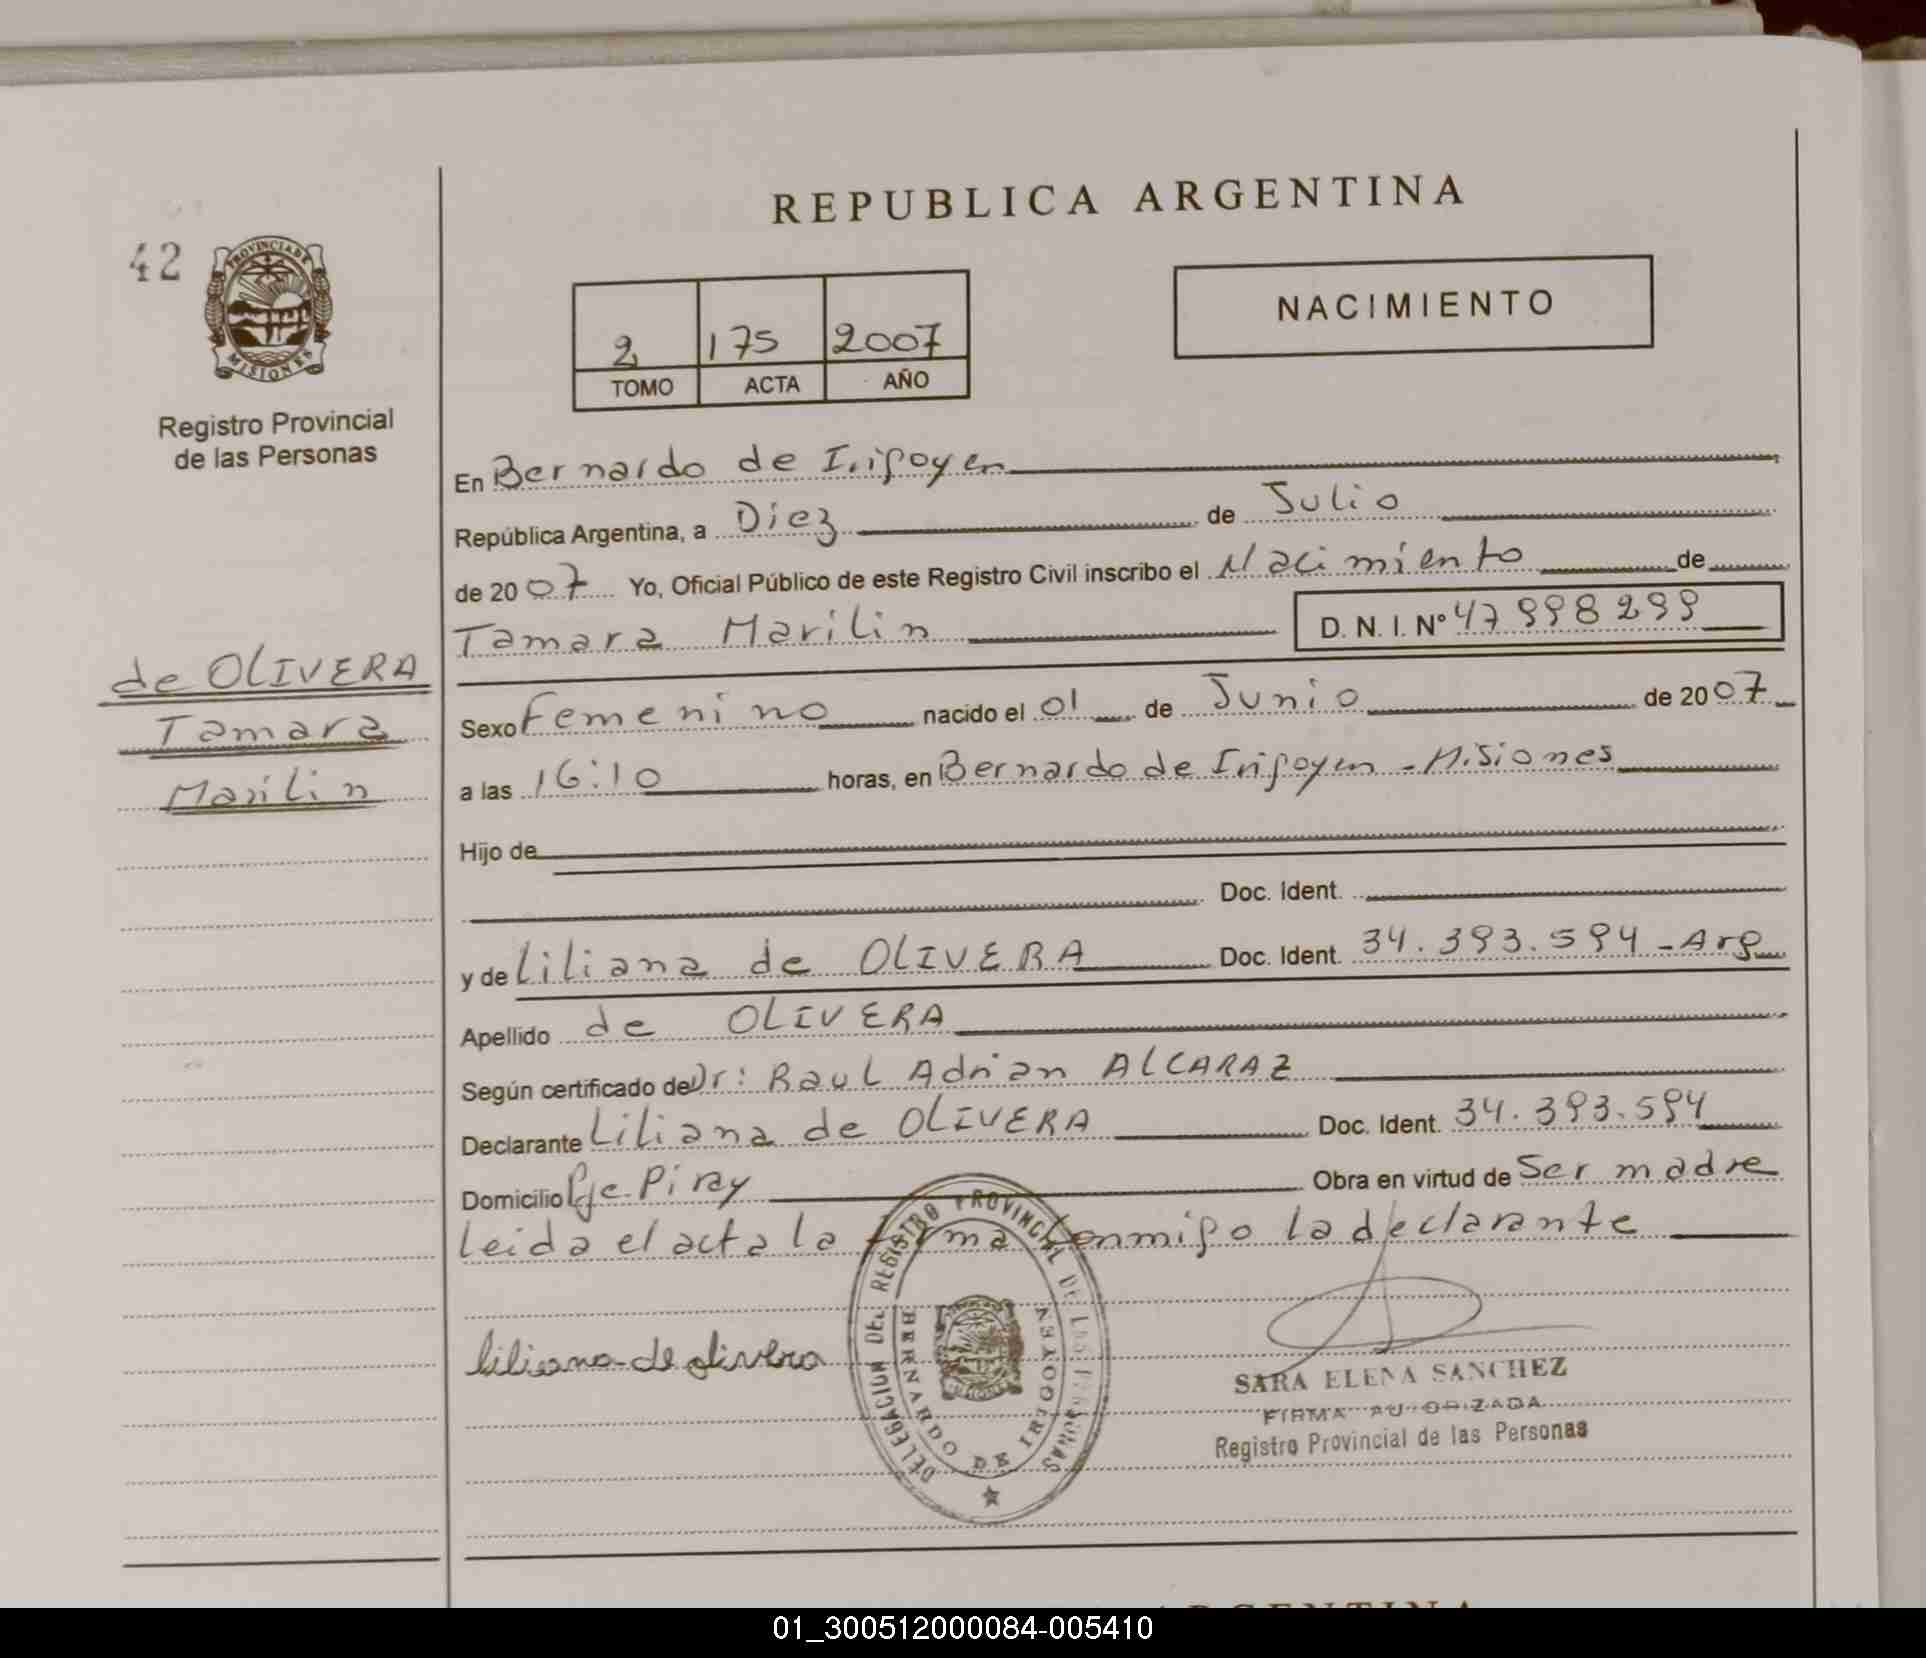 REPUBLICA ARGENTINA
42
PROVINCIA DE
MISIONES
Registro Provincial
de las Personas
2 175 2007
TOMO ACTA AÑO
NACIMIENTO
En Bernardo de Irigoyen
República Argentina, a Diez de Julio
de 2007 Yo, Oficial Público de este Registro Civil inscribo el Nacimiento de
Tamara Marilin D. N. I. Nº 47998299
de OLIVERA
Tamara
Marilin
Sexo Femenino nacido el 01 de Junio de 2007
a las 16:10 horas, en Bernardo de Irigoyen - Misiones
Hijo de
Doc. Ident.
y de Liliana de OLIVERA Doc. Ident. 34.393.594 - Arg
Apellido de OLIVERA
Según certificado de Dr: Raul Adrian ALCARAZ
Declarante Liliana de OLIVERA Doc. Ident. 34.393.594
Domicilio Pje. Piray Obra en virtud de Ser madre
Leida el acta la firma conmigo la declarante
liliana de olivera
DELEGACION DEL REGISTRO PROVINCIAL DE LAS PERSONAS
BERNARDO DE IRIGOYEN
SARA ELENA SANCHEZ
FIRMA AUTORIZADA
Registro Provincial de las Personas
ARGENTINA
01_300512000084-005410